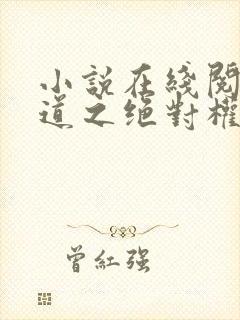 小說在綫閱
道之绝對權
曾紅强